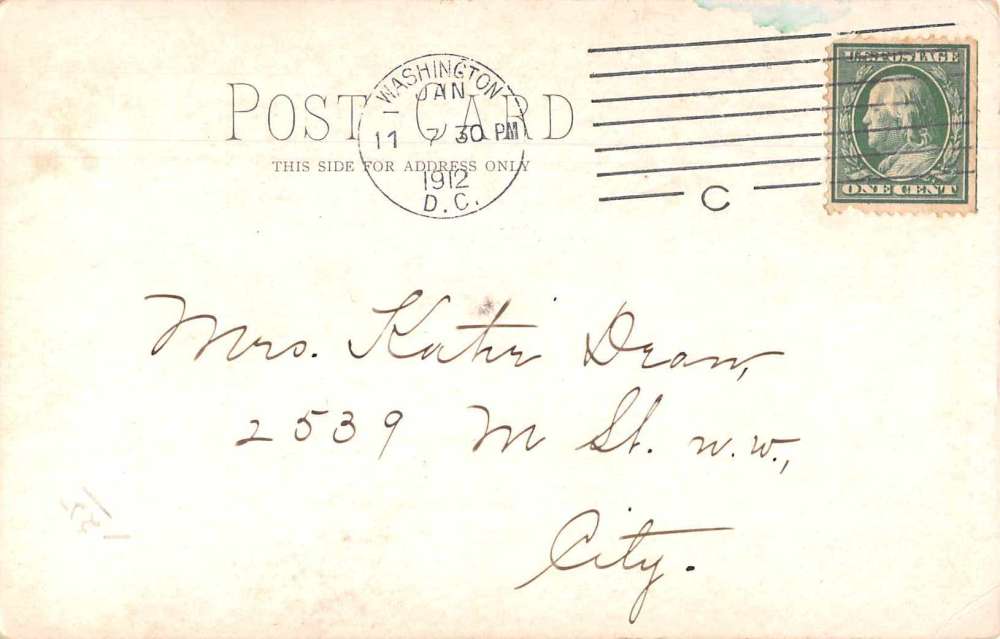 POST CARD
THIS SIDE FOR ADDRESS ONLY
WASHINGTON
JAN
11 7 30 PM
1912
D.C.
C
U.S. POSTAGE
ONE CENT
Mrs. Katie Dean,
2539 M St. N.W.,
City.